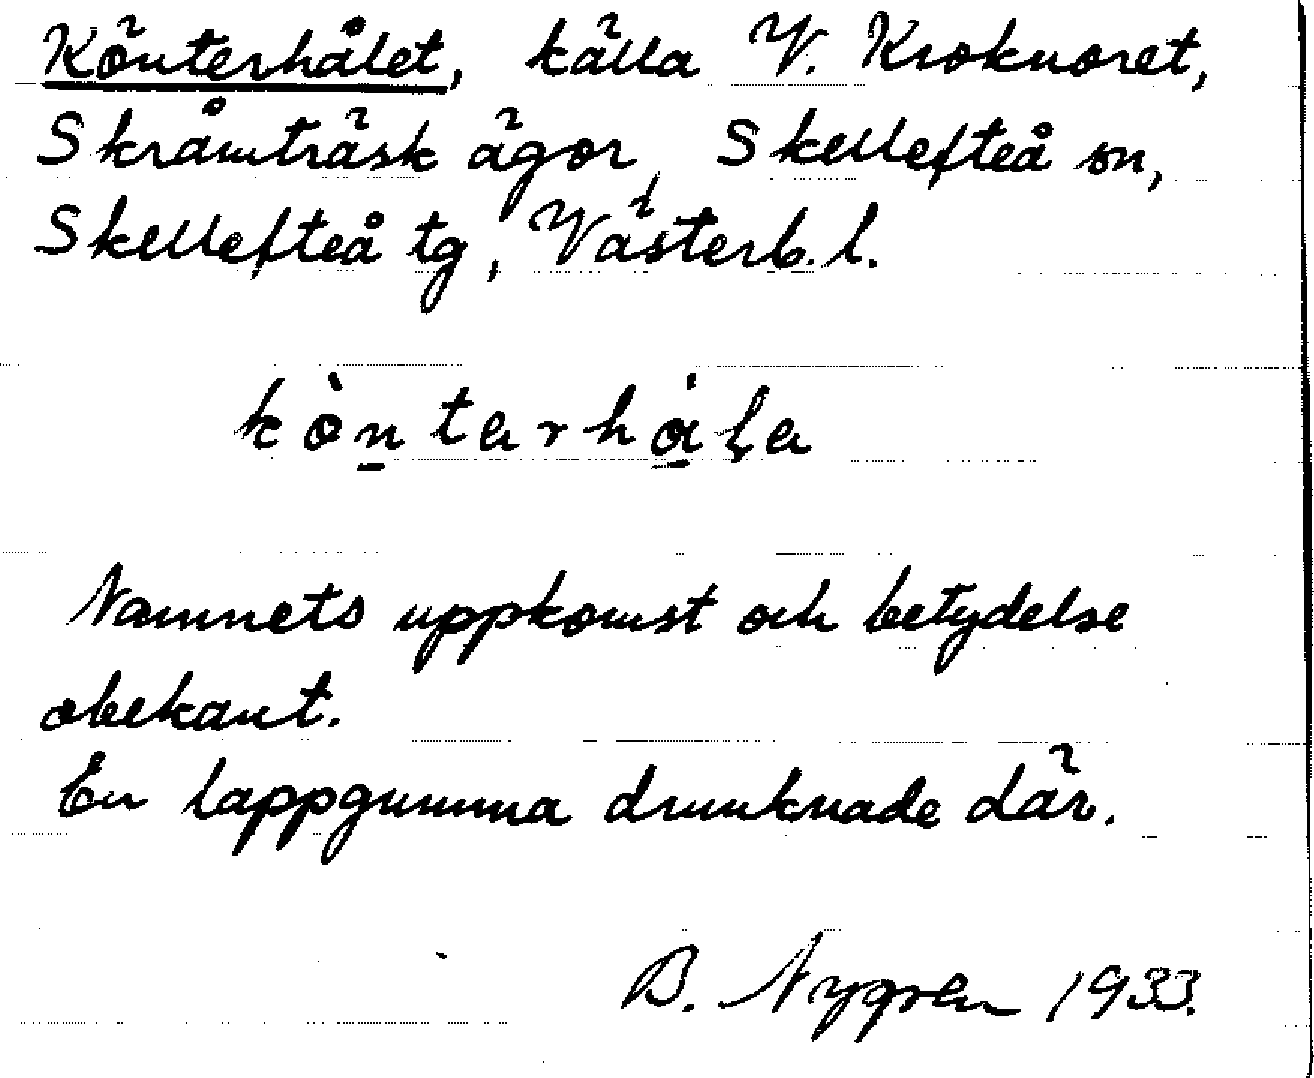 Könterhålet, källa V. Kroknoret,
Skråmträsk ägor, Skellefteå sn,
Skellefteå tg, Västerb. l.
kòntarhåla
Namnets uppkomst och betydelse
obekant.
En lappgumma drunknade där.
B. Nygren 1933.